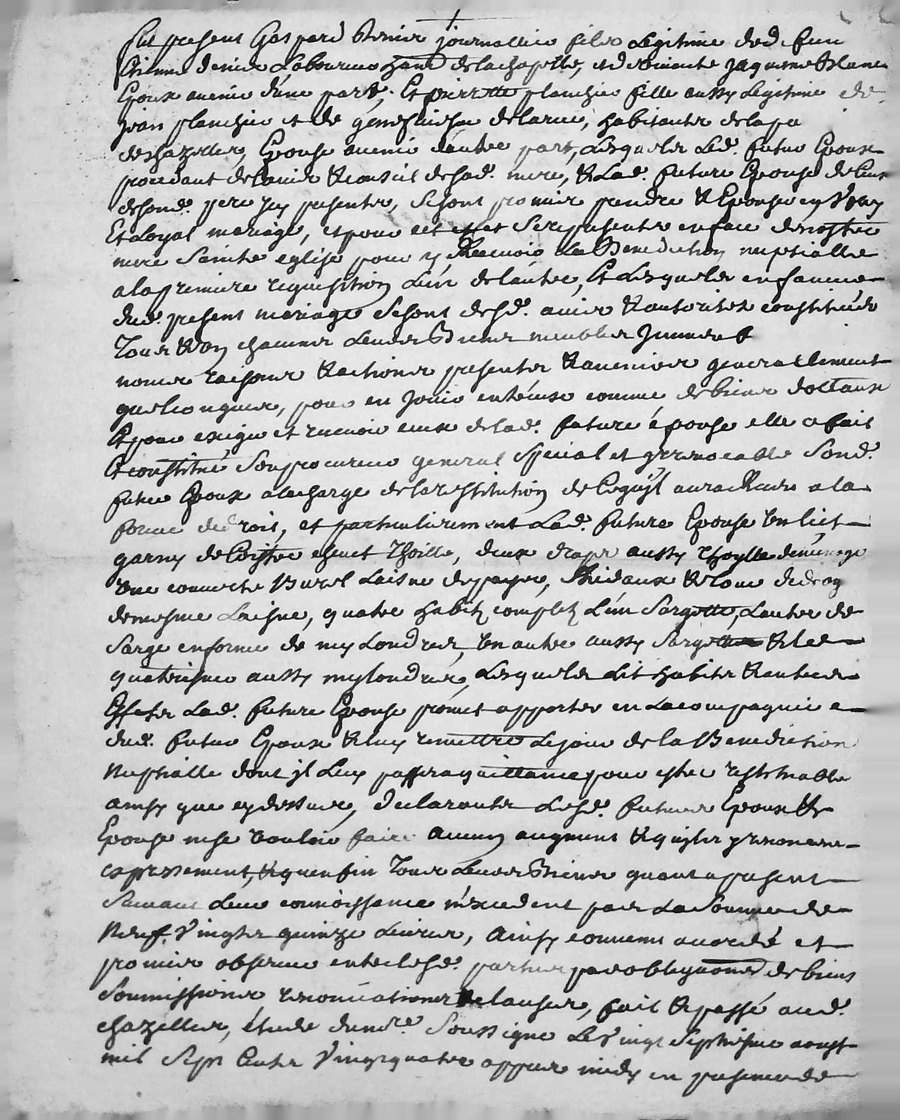 fut present Gaspard Venier journallier filz Legitime de d. feu
Etienne Venier Laboureur hant de la chapelle, et demeurante Jaqueme Blanc
Epoux avenir d'une part, Et pierrotte planchier fille aussy Legitime de
Jean planchier et de genefieusve delarue, habitante de la pe
de chazelles, Epouse avenir d'autre part, Lesquels Led. futur Epoux
procedant de l'avis & conseil de sad. mere, & Lad. future Epouse de Celuy
de sond. pere icy presentes, se sont promis prendre & Epouser en Vray
Et Loyal mariage, et pour cet effet se representer en face de nostre
mere Sainte eglise pour y Recevoir La Benediction nuptialle
a la premiere requisition L'un de l'autre, Et Lesquels en faveur
dud. present mariage se sont desd. avis & autorites constitués
Tous & un chacuns Leurs Biens meubles Immeub
noms raisons & actions presents & avenirs generallement
quelconques, pour en Jouir entreux comme de biens dottaux
Et pour exiger et recevoir ceux de lad. future épouse elle a fait
Et constitué son procureur general special et irrevocable sond.
futur Epoux a la charge de la restitution de Ce qu'il aura Receu a la
forme de droit, et particulierement Lad. future Epouse un lict
garny de Coistre chevet Thoille, deux draps aussy Thoylle de menage
une couverte Burel Laisne de payis, Rideaux & Tour de drag
de mesme Laisne, quatre habits complets L'un Sargette, L'autre de
Sarge en forme de my Londres, un autre aussy Sargette & le
quatriesme aussy my londres, Lesquels Lit habits & autres
Effets Lad. future Epouse promet apporter en La compagnie
dud. futur Epoux & luy remettre Le jour de la Benediction
Nuptialle dont il Luy passera quittance pour estre restituable
ainsy que cy dessus, declarants Lesd. futurs Epoux &
Epouse ne se vouloir faire Aucun augment & qu'ils y renoncent
expressement, & qu'enfin Tous Leurs Biens quant a present
Suivant Leur connoissance n'excedent pas La Somme de
Neuf Vingts quinze Livres, Ainsy convenu accordé et
promis observer entre lesd. parties par obligations de biens
Soumissions renonciations & clauses, fait & passé aud.
chazelles, étude du nre. Soussigné Le Vingt Septiesme aoust
mil Sept Cents Vingt quatre appres midy en presence de